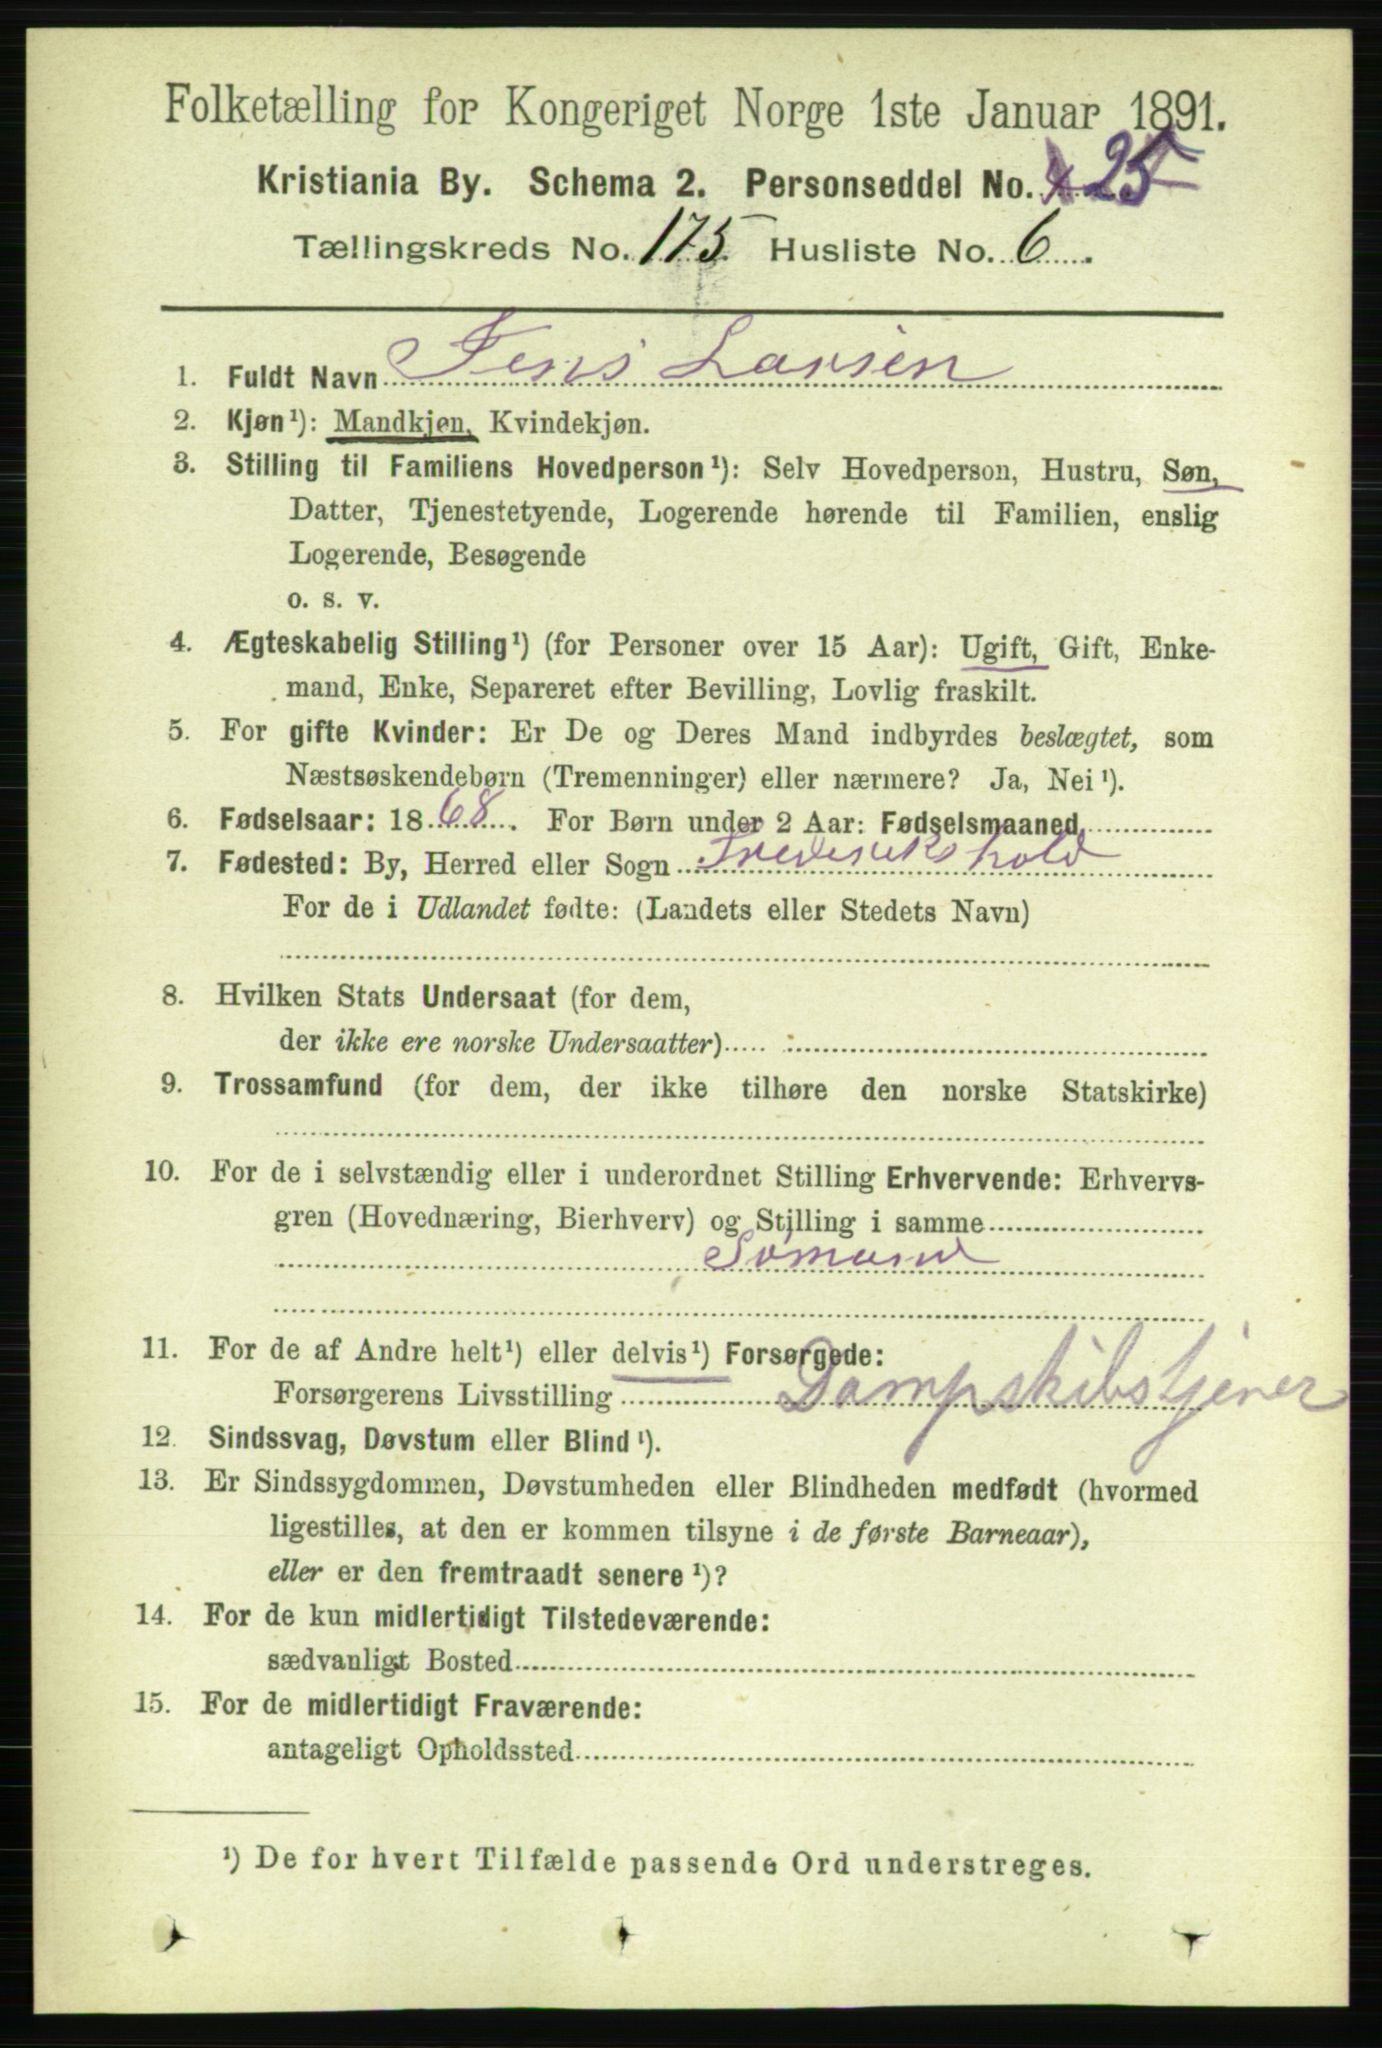 Folketælling for Kongeriget Norge 1ste Januar 1891.
Kristiania By. Schema 2. Personseddel No. 25
Tællingskreds No. 175 Husliste No. 6.
1. Fuldt Navn Jens Larsen
2. Kjøn¹): Mandkjøn, Kvindekjøn.
3. Stilling til Familiens Hovedperson¹): Selv Hovedperson, Hustru, Søn,
Datter, Tjenestetyende, Logerende hørende til Familien, enslig
Logerende, Besøgende
o. s. v.
4. Ægteskabelig Stilling¹) (for Personer over 15 Aar): Ugift, Gift, Enke-
mand, Enke, Separeret efter Bevilling, Lovlig fraskilt.
5. For gifte Kvinder: Er De og Deres Mand indbyrdes beslægtet, som
Næstsøskendebørn (Tremenninger) eller nærmere? Ja, Nei¹).
6. Fødselsaar: 1868. For Børn under 2 Aar: Fødselsmaaned
7. Fødested: By, Herred eller Sogn Frederikshald
For de i Udlandet fødte: (Landets eller Stedets Navn)
8. Hvilken Stats Undersaat (for dem,
der ikke ere norske Undersaatter)
9. Trossamfund (for dem, der ikke tilhøre den norske Statskirke)
10. For de i selvstændig eller i underordnet Stilling Erhvervende: Erhvervs-
gren (Hovednæring, Bierhverv) og Stilling i samme
Sømand
11. For de af Andre helt¹) eller delvis¹) Forsørgede:
Forsørgerens Livsstilling Dampskibstjener
12. Sindssvag, Døvstum eller Blind¹).
13. Er Sindssygdommen, Døvstumheden eller Blindheden medfødt (hvormed
ligestilles, at den er kommen tilsyne i de første Barneaar),
eller er den fremtraadt senere¹)?
14. For de kun midlertidigt Tilstedeværende:
sædvanligt Bosted
15. For de midlertidigt Fraværende:
antageligt Opholdssted
¹) De for hvert Tilfælde passende Ord understreges.